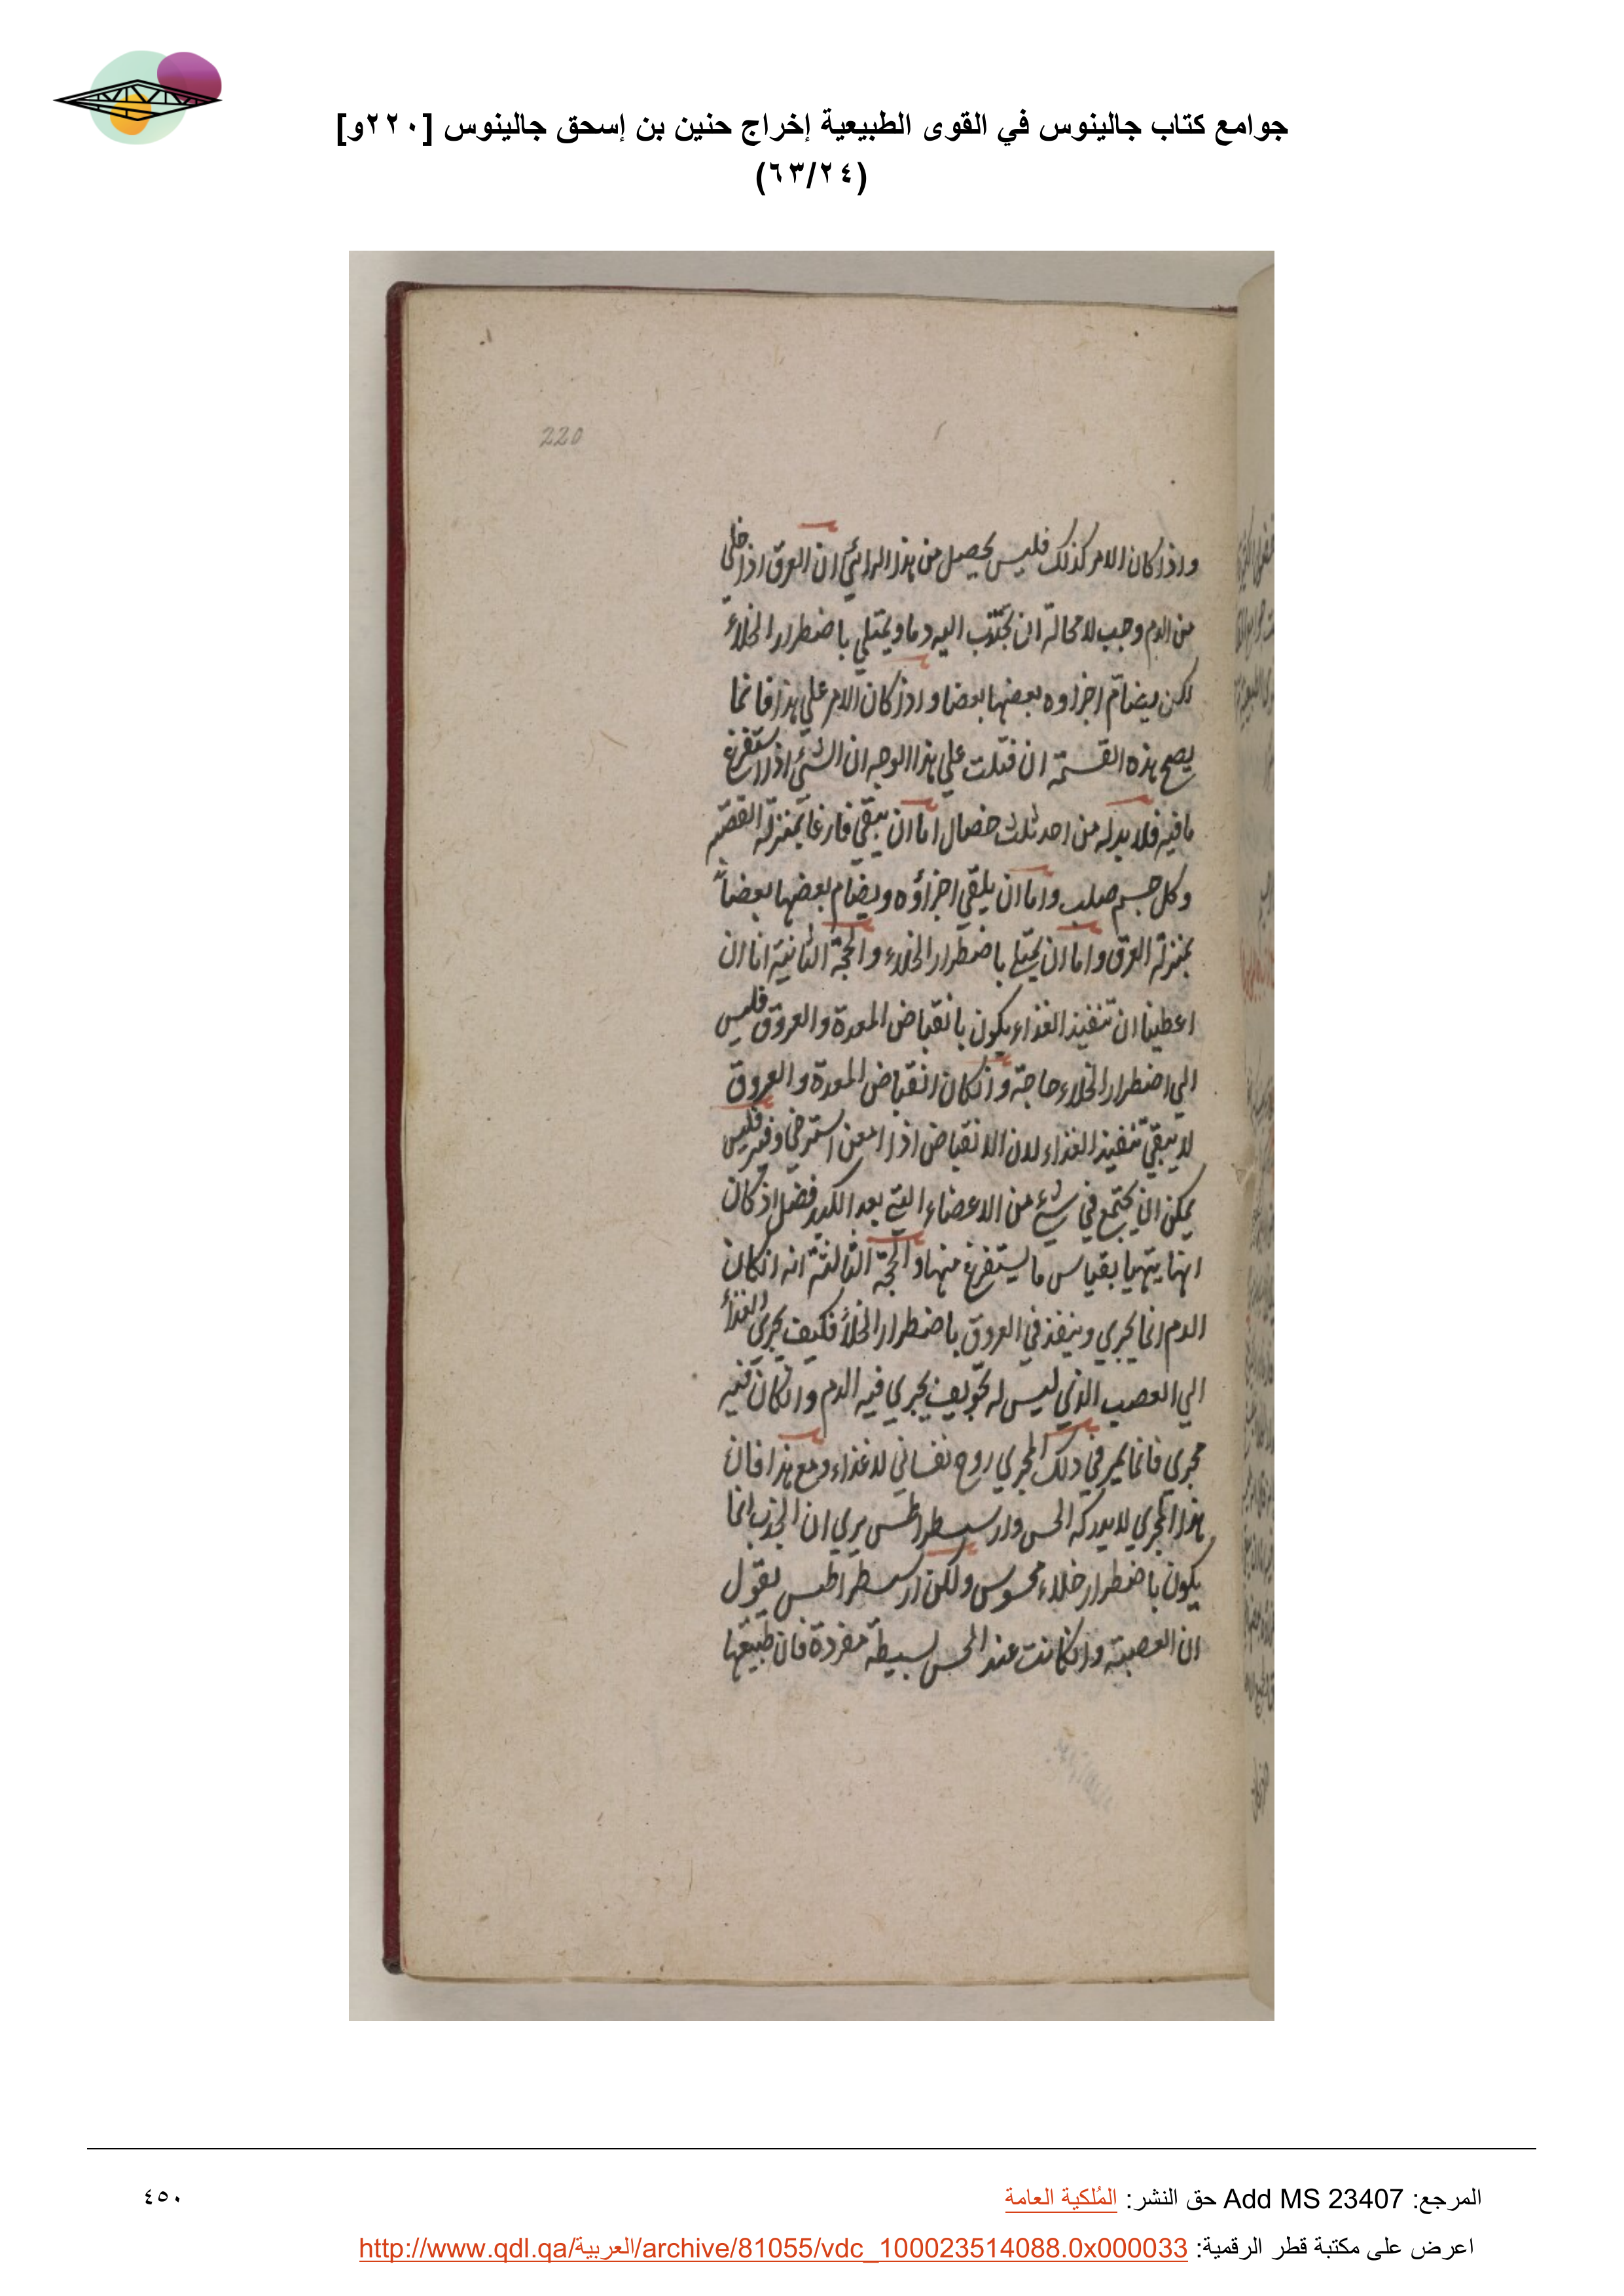 جوامع كتاب جالينوس في القوى الطبيعية إخراج حنين بن إسحق جالينوس [٢٢٠و]
(٦٣/٢٤)
220
واذا كان الامر كذلك فليس يحصل من هذا الرائي ان العرق اذا خلي
من الدم وجب لا محالة ان يجتذب اليه دما ويمتلي باضطرار الخلاء
لكن يضام اجزاوه بعضها بعضا واذ كان الامر علي هذا فانما
يصح هذه القسمة ان قيلت علي هذا الوجه ان الشئ اذا استفرغ
ما فيه فلا بد له من احد ثلث خصال اما ان يبقي فارغا بمنزلة القصبة
وكل جسم صلب واما ان يلتقي اجزاؤه ويضام بعضها بعضاً
بمنزلة العرق واما ان يمتلي باضطرار الخلاء والحجة الثانية انا ان
اعطينا ان تنفيذ الغذاء يكون بانقباض المعدة والعروق فليس
الي اضطرار الخلاء حاجة وان كان انقباض المعدة والعروق
لا يبقي تنفيذ الغذاء لان الانقباض اذا امعن استرخي وفتر فليس
يمكن ان يجتمع في شئ من الاعضاء التي بعد الكبد فضل اذ كان
انها يتهيا بقياس ما يستفرغ منها والحجة الثالثة انه ان كان
الدم انما يجري وينفذ في العروق باضطرار الخلأ فكيف يجري الغذأ
الي العصب الذي ليس له تجويف يجري فيه الدم وان كان فيه
مجري فانما يمر في ذلك المجري روح نفساني لا غذاء ومع هذا فان
هذا المجري لا يدركه الحس وارسطراطس يري ان الجذب انما
يكون باضطرار خلاء محسوس ولكن ارسطراطس يقول
ان العصبة وان كانت عند الحس بسيطة مفردة فان طبيعتها
المرجع: Add MS 23407 حق النشر: المُلكية العامة
٤٥٠
اعرض على مكتبة قطر الرقمية: http://www.qdl.qa/العربية/archive/81055/vdc_100023514088.0x000033